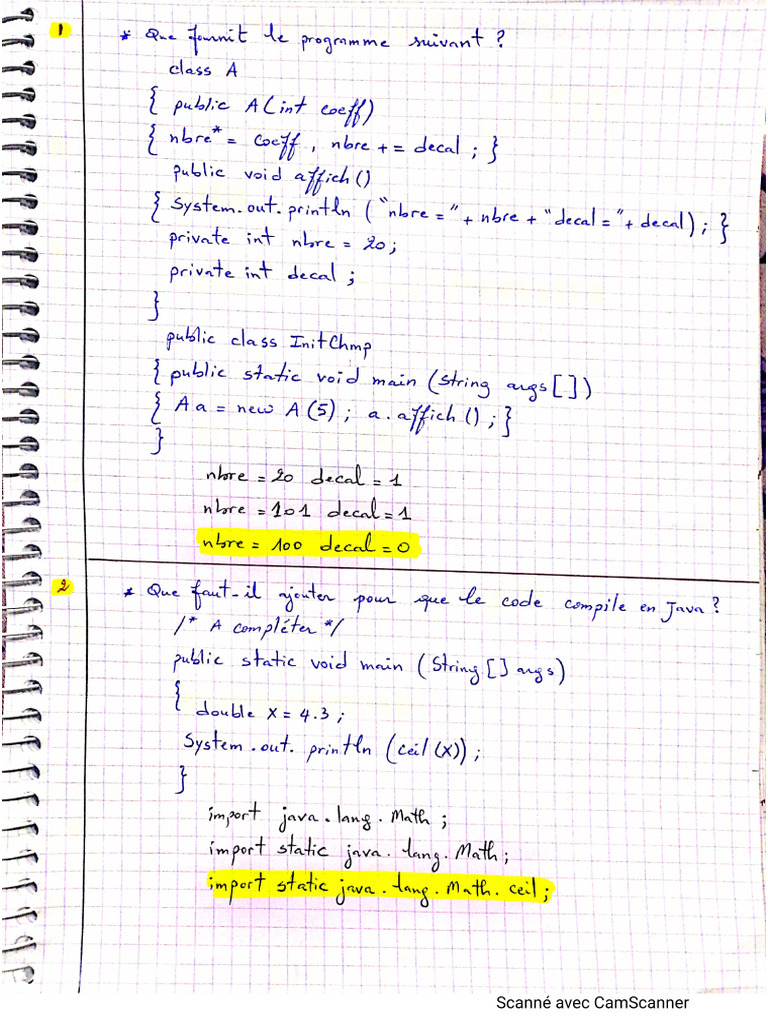 1
* Que fournit le programme suivant ?
class A
{ public A(int coeff)
{ nbre* = coeff , nbre += decal ; }
public void affich()
{ System.out.println ("nbre =" + nbre + "decal =" + decal) ; }
private int nbre = 20;
private int decal ;
}
public class InitChmp
{ public static void main (String args [])
{ A a = new A (5) ; a.affich () ; }
}
nbre = 20 decal = 1
nbre = 101 decal = 1
nbre = 100 decal = 0
2
* Que faut-il ajouter pour que le code compile en Java ?
/* A compléter */
public static void main (String [] args)
{
double x = 4.3 ;
System.out.println (ceil (x)) ;
}
import java.lang.Math ;
import static java.lang.Math;
import static java.lang.Math.ceil;
Scanné avec CamScanner